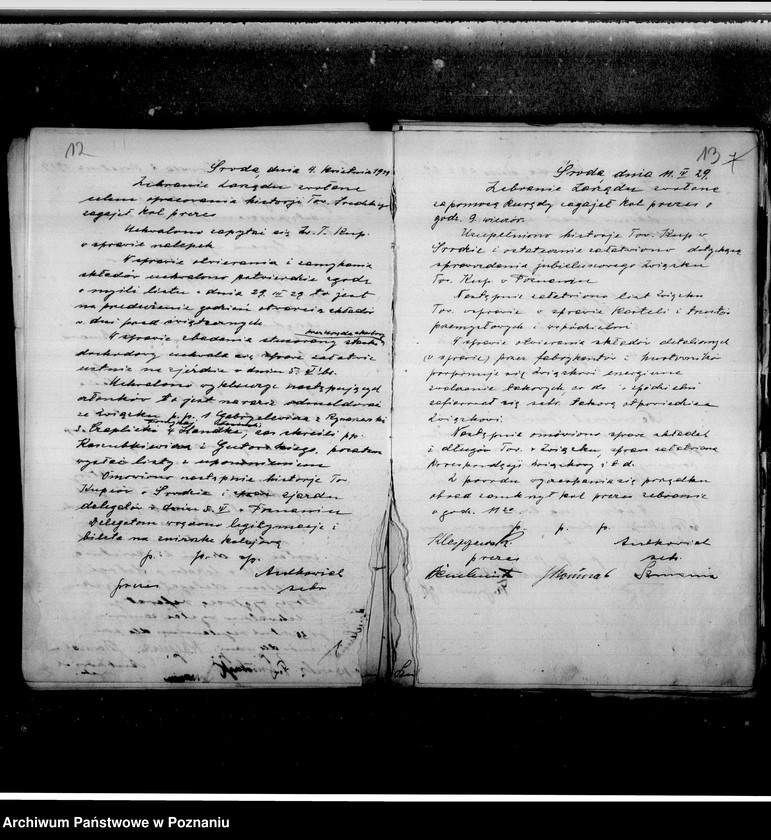 12
Środa, dnia 4. kwietnia 1929
Zebranie Zarządu zwołane
celem opracowania historji Tow. Średzkiego
zagajeł kol prezes
Uchwalono zapytać się Zw. T. Kup.
o sprawie nalepek
W sprawie otwierania i zamykania
składów uchwalono potwierdzić zgodę
o myśli listu z dnia 29. III 29 to jest
na przedłużenie godzin otwarcia składów
w dni przed świątecznych
W sprawie zbadania
dochodowy uchwala się sprawę załatwić
ustnie na zjeździe w dniu 5. V br.
Uchwalono wykluczyć następujących
członków to jest naraz odmeldować
ze Związku p.p. 1 Gabryelewicz 2 Rynarzewski
3. Czaplicki 4 Handke, zaś skreślić pp.
i Gutowskiego. pozatem
wysłać listy z upomnieniem
Omówiono następnie historję Tow.
Kupców w Środzie i zjazdu
delegatów z dniu 5. V w Poznaniu
Delegatom wręczono legitymacje i
bilety na zniżkę kolejową
p. p. p.
Andkowiak
prezes sekr
13
Środa, dnia 11. IV 29.
Zebranie Zarządu zwołane
za pomocą kurędy zagajeł kol prezes o
godz. 9. wieczór.
Uzupełniono historję Tow. Kup w
Środzie i ostatecznie załatwiono dotyczącą
sprawozdania jubileuszowego Związku
Tow. Kup w Poznaniu
Następnie załatwiono list Związku
Tow. w sprawie karteli i trustów
przemysłowych i
W sprawie otwierania składów detalicznych
(w sprawie) przez fabrykantów i hurtowników
proponuje się Związkowi energiczne
zwalczanie takowych, co do spółdzielni
zaofiarował się sekr. takową odpowiedzieć
Związkowi.
Następnie omówiono sprawę składek
i długów Tow. w Związku, sprawę załatwienia
korespondencji związkowej i t d.
Z powodu wyczerpania się porządku
obrad zamknął kol prezes zebranie
o godz. 11
p. p. p.
Andkowiak
prezes sekr.